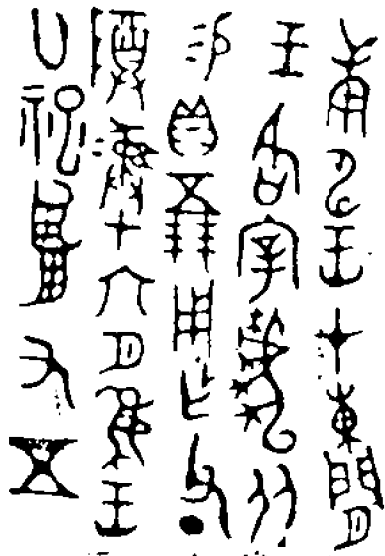 庚申王才闌
王各宰椃从
易貝五朋用乍父丁
尊彝才六月隹王
廿祀翌又五